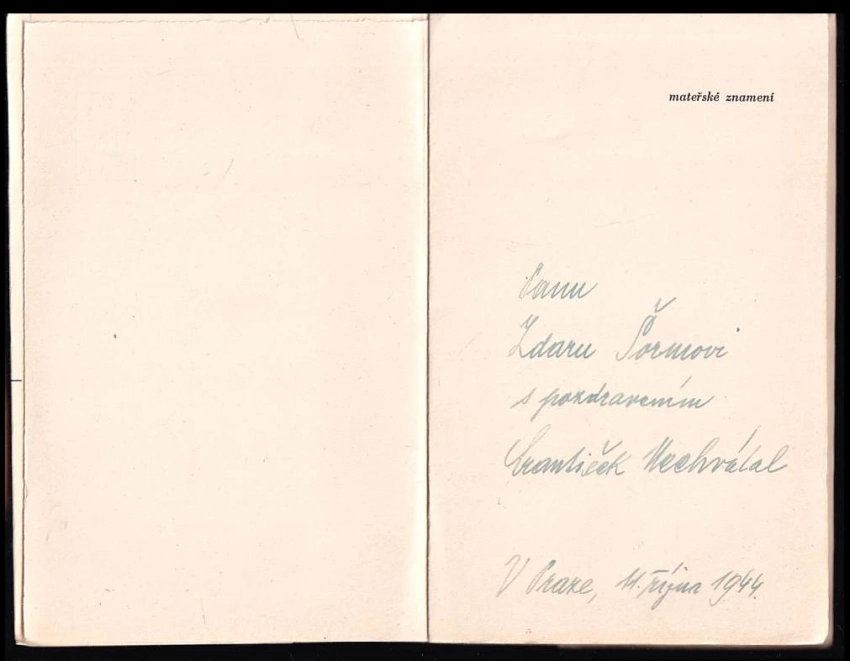 mateřské znamení
Panu
Zdaru Šormovi
s pozdravením
František Nechvátal
V Praze, 11. října 1944.